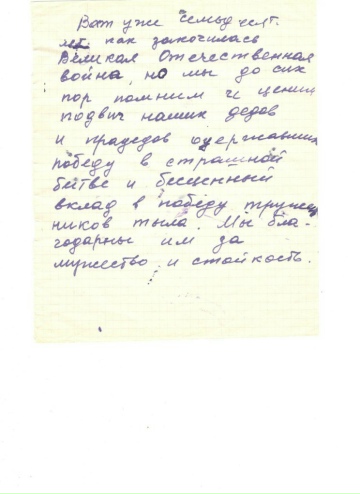 Вот уже семьдесят
лет как закончилась
Великая Отечественная
война, но мы до сих
пор помним и ценим
подвиг наших дедов
и прадедов одержавших
победу в страшной
битве и бесценный
вклад в победу труже
ников тыла. Мы бла-
годарны им за
мужество и стойкость.